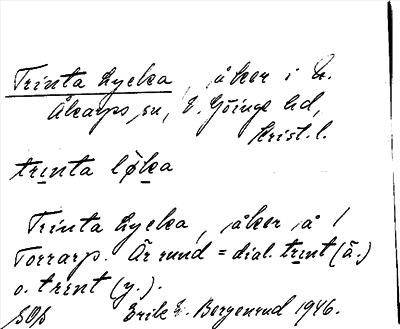 Trinta Lycka, åker i N.
Åkarps sn, V. Göinge hd,
Krist. l.
trɪnta løka
Trinta Lycka, åker på 1
Torrarp. Är rund = dial. trɪnt (ä.)
o. trɪnt (y.).
Erik E. Bergenrud 1946.